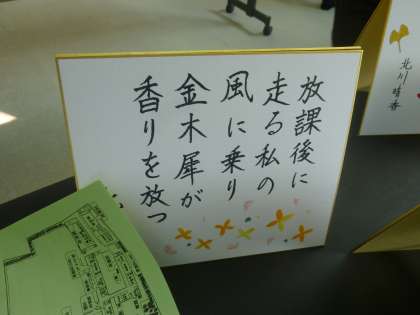 放課後に
走る私の
風に乗り
金木犀が
香りを放つ
北川晴香